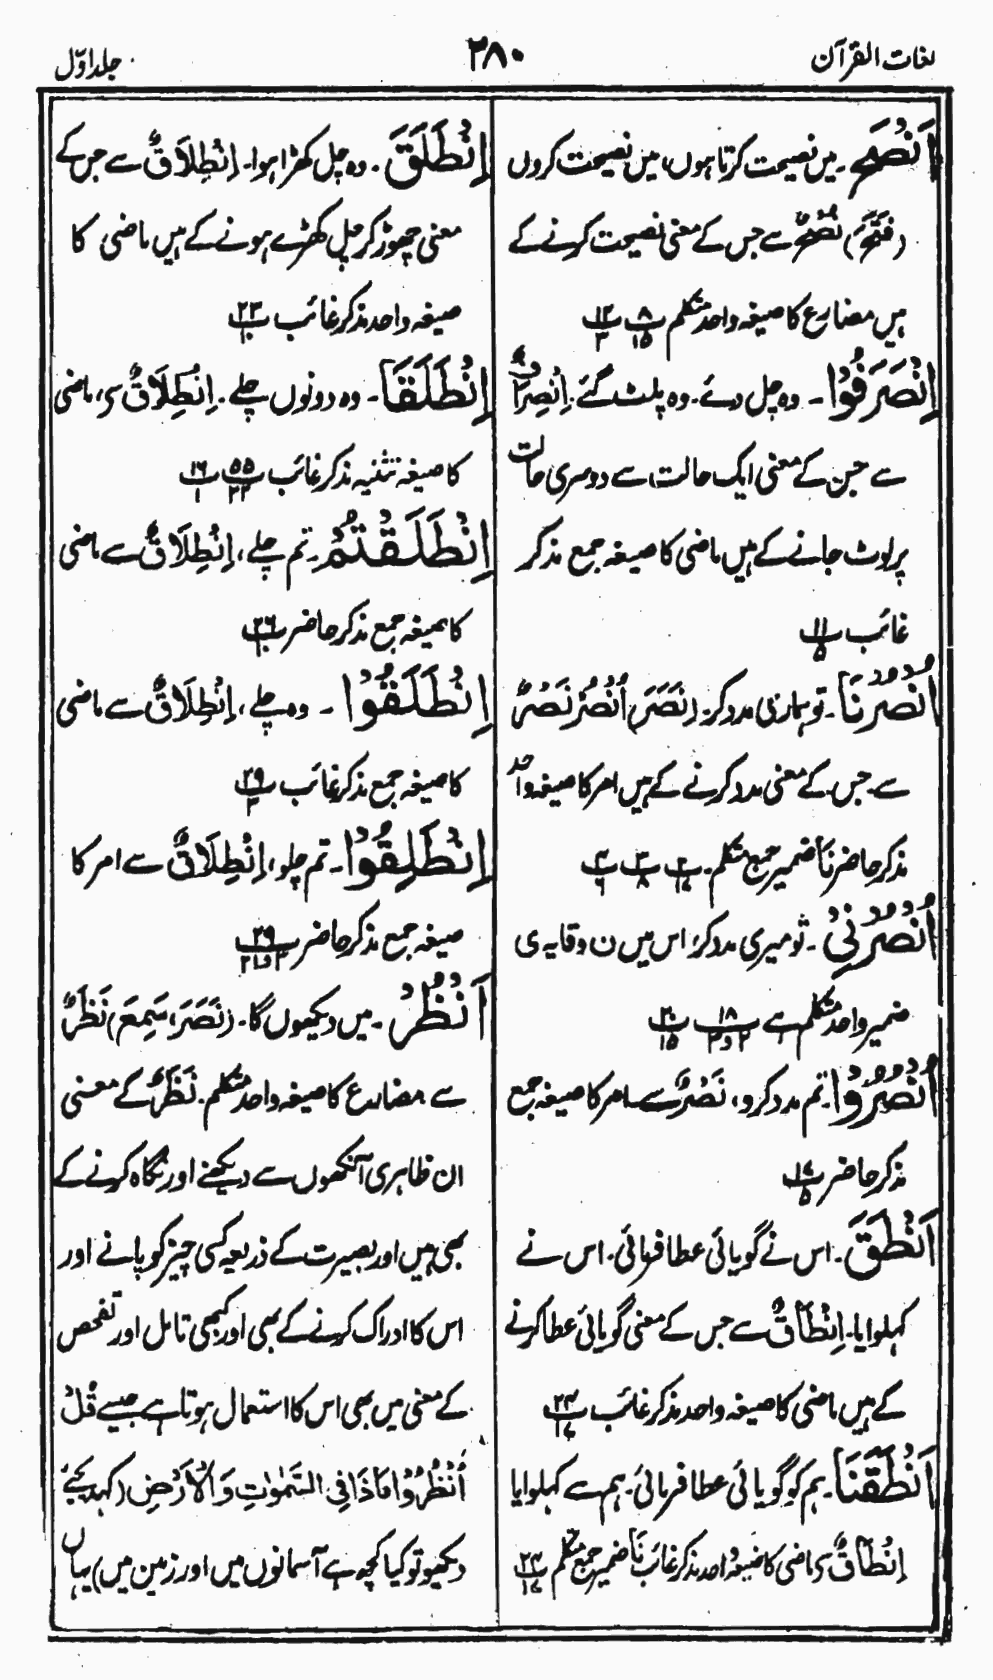 لغات القرآن
۲۸۰
جلد اوّل
اَنْصَحُ ۔ میں نصیحت کرتا ہوں، میں نصیحت کروں
(فَتَحَ) نُصْحٌ سے جس کے معنی نصیحت کرنے کے
ہیں مضارع کا صیغہ واحد متکلم
اِنْصَرَفُوْا ۔ وہ چل دئے۔ وہ پلٹ گئے۔ اِنْصِرَافٌ
سے جس کے معنی ایک حالت سے دوسری حالت
پر لوٹ جانے کے ہیں ماضی کا صیغہ جمع مذکر
غائب پ ۱۱/۵
اُنْصُرْنَا ۔ تو ہماری مدد کر۔ (نَصَرَ) اُنْصُرْ نَصْرٌ
سے۔ جس کے معنی مدد کرنے کے ہیں امر کا صیغہ واحد
مذکر حاضر نَا ضمیر جمع متکلم۔
اُنْصُرْنِیْ ۔ تو میری مدد کر، اس میں ن وقایہ ی
ضمیر واحد متکلم ہے
اُنْصُرُوْا ۔ تم مدد کرو، نَصْرٌ سے امر کا صیغہ جمع
مذکر حاضر
اَنْطَقَ ۔ اس نے گویائی عطا فرمائی۔ اس نے
کہلوایا۔ اِنْطَاقٌ سے جس کے معنی گویائی عطا کرنے
کے ہیں ماضی کا صیغہ واحد مذکر غائب
اَنْطَقَنَا ۔ ہم کو گویائی عطا فرمائی۔ ہم سے کہلوایا
اِنْطَاقٌ سے ماضی کا صیغہ واحد مذکر غائب نَا ضمیر جمع متکلم
اِنْطَلَقَ ۔ وہ چل کھڑا ہوا۔ اِنْطِلَاقٌ سے جس کے
معنی چھوڑ کر چل کھڑے ہونے کے ہیں ماضی کا
صیغہ واحد مذکر غائب
اِنْطَلَقَا ۔ وہ دونوں چلے۔ اِنْطِلَاقٌ سے، ماضی
کا صیغہ تثنیہ مذکر غائب
اِنْطَلَقْتُمْ ۔ تم چلے، اِنْطِلَاقٌ سے ماضی
کا صیغہ جمع مذکر حاضر
اِنْطَلَقُوْا ۔ وہ چلے، اِنْطِلَاقٌ سے ماضی
کا صیغہ جمع مذکر غائب
اِنْطَلِقُوْا ۔ تم چلو، اِنْطِلَاقٌ سے امر کا
صیغہ جمع مذکر حاضر
اَنْظُرُ ۔ میں دیکھوں گا۔ (نَصَرَ، سَمِعَ) نَظَرٌ
سے مضارع کا صیغہ واحد متکلم۔ نَظَرٌ کے معنی
ان ظاہری آنکھوں سے دیکھنے اور نگاہ کرنے کے
بھی ہیں اور بصیرت کے ذریعہ کسی چیز کو پانے اور
اس کا ادراک کرنے کے بھی اور کبھی تامل اور تفحص
کے معنی میں بھی اس کا استعمال ہوتا ہے جیسے قُلْ
اُنْظُرُوْا مَاذَا فِی السَّمٰوٰتِ وَالْاَرْضِ (کہدیجئے
دیکھو تو کیا کچھ ہے آسمانوں میں اور زمین میں) یہاں